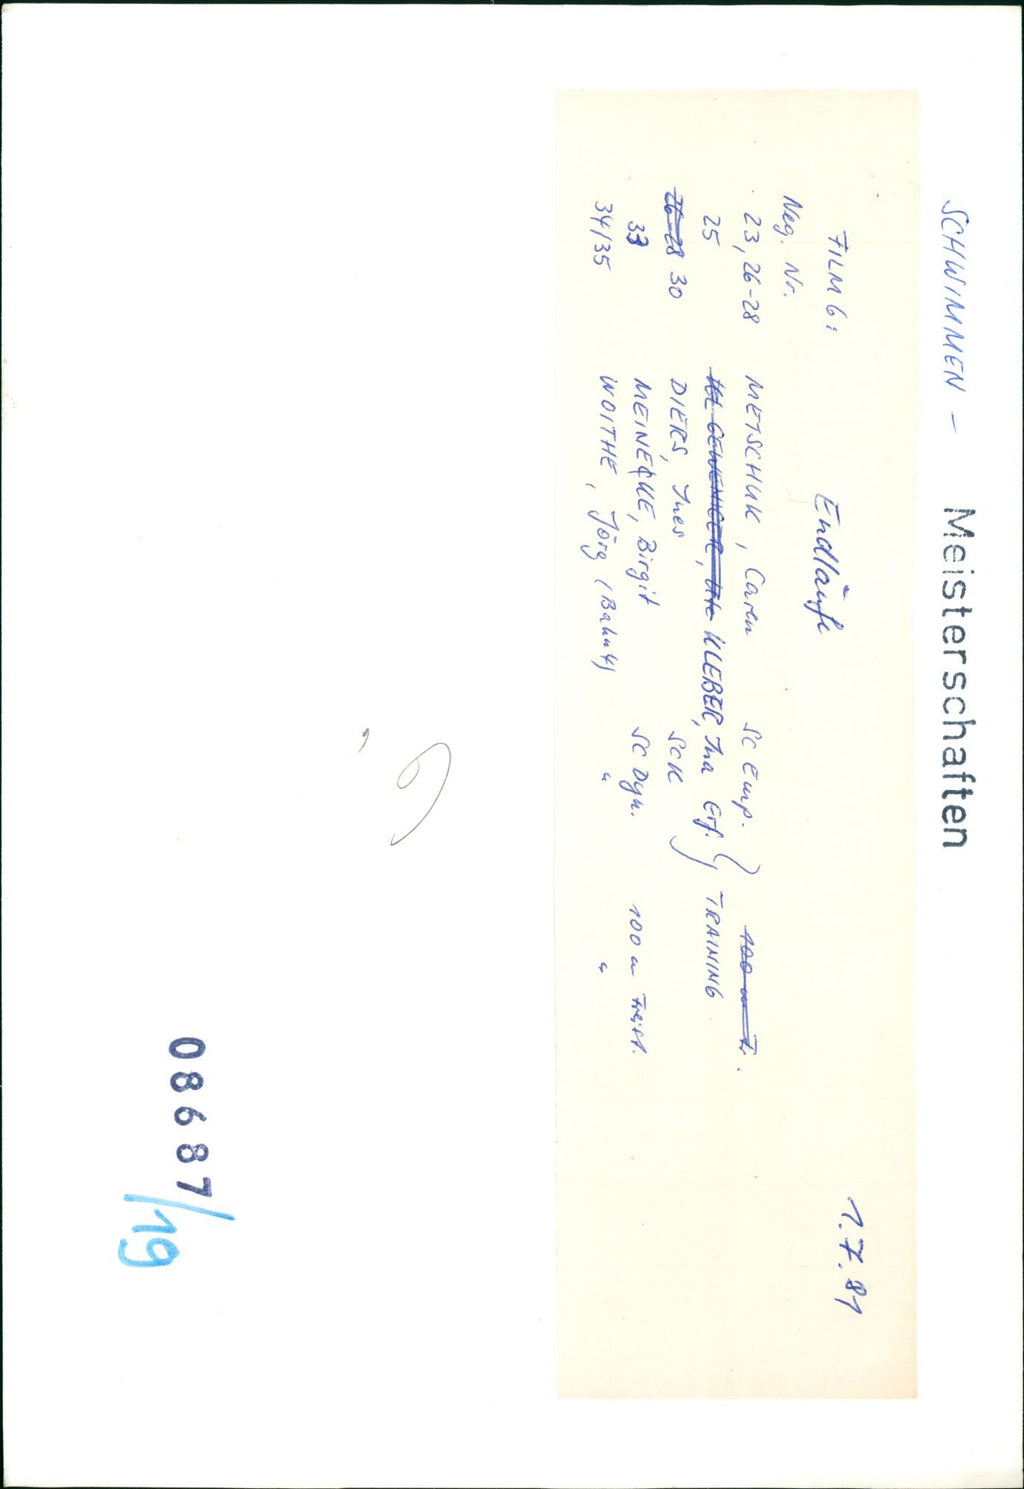 SCHWIMMEN – Meisterschaften
FILM 6: Endläufe 1.7.81
Neg. Nr.
23, 26-28 METSCHUK, Caren SC Emp. 100 m Fr.
25 KLEBER, Ina Erf. TRAINING
26-28 30 DIERS, Ines SCK
33 MEINECKE, Birgit SC Dyn. 100 m Freist.
34/35 WOITHE, Jörg (Bahn 4) " "
6
08687/19